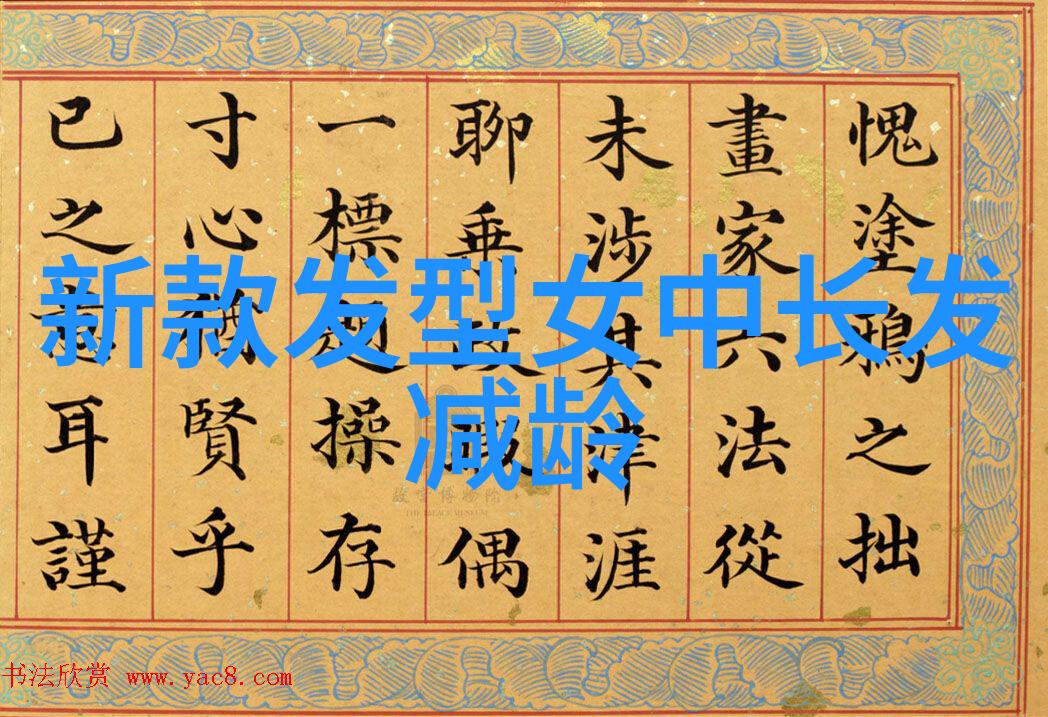 愧塗鴉之拙
畫家六法從
未涉其津涯
聊乗政偶
一標操存
寸心猶賢乎
已之耳謹
新款发型女中长发
减龄
故宫博物院
THE PALACE MUSEUM
书法欣赏 www.yac8.com